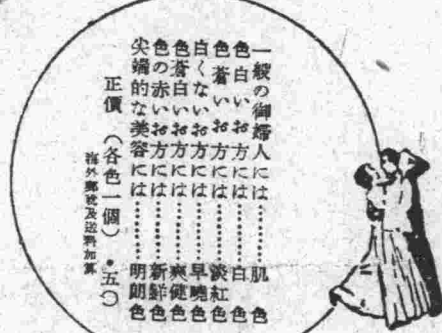 一般の御婦人には………肌色
色白いお方には………白色
色蒼いお方には………淡紅色
白くないお方には………早曉色
色蒼白いお方には………爽健色
色の赤いお方には………新鮮色
尖端的な美容には………明朗色
正價（各色一個）・五〇
海外郵稅及送料加算